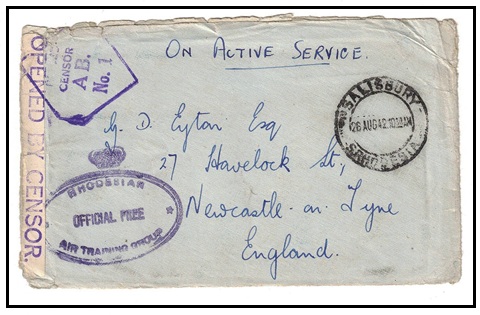 OPENED BY CENSOR.
CENSOR
A B.
No. 1
ON ACTIVE SERVICE.
SALISBURY
26 AUG 42
S. RHODESIA
D. Eyton Esq
27 Havelock St.,
Newcastle on Tyne
England.
RHODESIAN
OFFICIAL FREE
AIR TRAINING GROUP